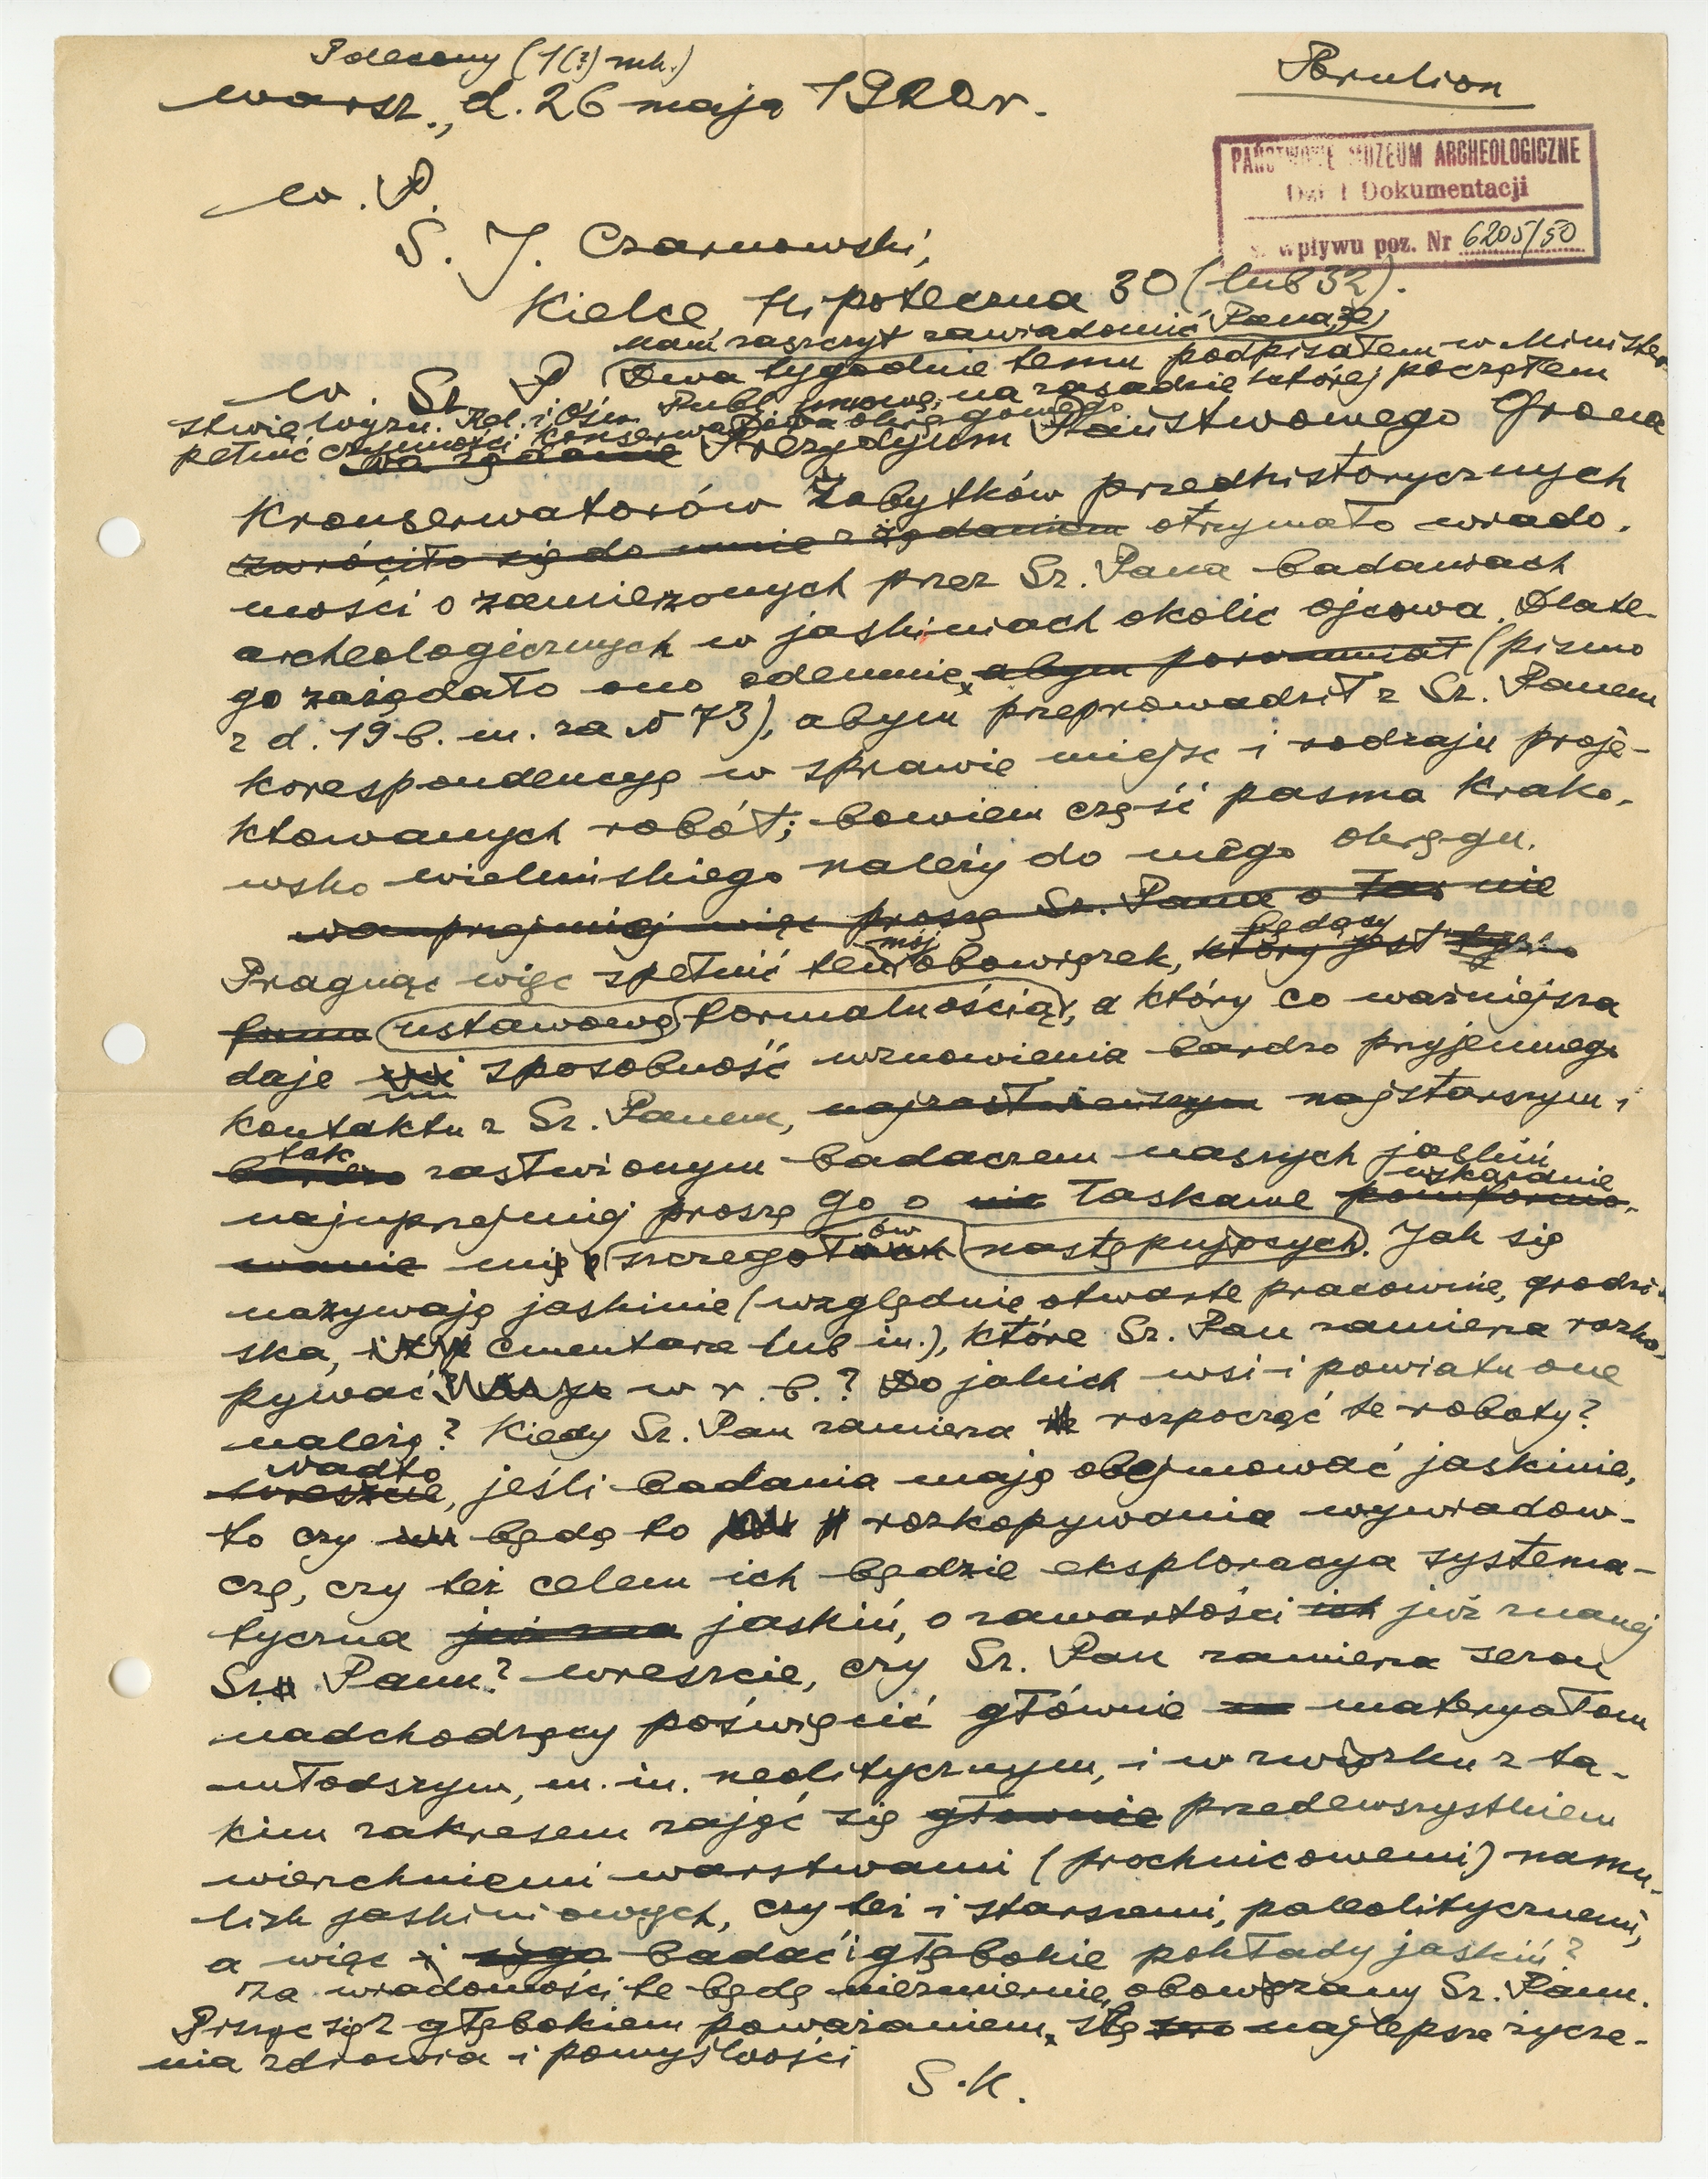 Polecony (1(?) mk.)
Brulion
Warsz., d. 26 maja 1920 r.
PAŃSTWOWE MUZEUM ARCHEOLOGICZNE
Dział Dokumentacji
wpływu poz. Nr 6205/50
W. P.
S. J. Czarnowski,
Kielce Hipoteczna 30 (lub 32).
mam zaszczyt zawiadomić Pana, że
W. Sz. P. Dwa tygodnie temu podpisałem w Minister-
stwie Wyzn. Rel. i Ośw. Publ. umowę, na zasadzie której począłem
pełnić czynności konserwatora okręgowego.
Na żądanie Prezydjum Państwowego Grona
Kronserwatorów Zabytków przedhistorycznych
zwróciło się do mnie z żądaniem otrzymało wiado-
mości o zamierzonych przez Sz. Pana badaniach
archeologicznych w jaskiniach okolic Ojcowa. Dlate-
go zażądało ono odemnie, abym porozumiał (pismo
z d. 19 b. m. za № 73), abym przeprowadził z Sz. Panem
korespondencyę w sprawie miejsc i rodzaju proje-
ktowanych robót; bowiem część pasma krako-
wsko wieluńskiego należy do mego okręgu.
Najuprzejmiej więc proszę Sz. Pana o łas nie
Pragnąc więc spełnić ten mój obowiązek, który jest będący tylko
forma ustawową formalnością, a który co ważniejsza
daje mi sposobność wznowienia bardzo przyjemnego
kontaktu z Sz. Panem, najzasłużeńszym najstarszym i
bardzo tak zasłużonym badaczem naszych jaskiń
najuprzejmiej proszę go o łaskawe poinformo- wskazanie
wanie mię szczegółów następujących. Jak się
nazywają jaskinie (względnie otwarte pracownie, grodzi-
ska, cmentarze lub in.), które Sz. Pan zamierza rozko-
pywać w r. b.? Do jakich wsi i powiatu one
należą? Kiedy Sz. Pan zamierza rozpocząć te roboty?
Wreszcie Nadto, jeśli badania mają obejmować jaskinie,
to czy będą to rozkopywania wywiadow-
cze, czy też celem ich będzie eksploracya systema-
tyczna już zna jaskiń, o zawartości ich już znanej
Sz. Panu? Wreszcie, czy Sz. Pan zamierza sezon
nadchodzący poświęcić głównie materyałom
młodszym, m. in. neolitycznym, i w związku z ta-
kim zakresem zająć się głównie przedewszystkiem
wierzchniemi warstwami (próchnicowemi) namu-
lisk jaskiniowych, czy też i starszemi, paleolitycznemi,
a więc badać i głębokie pokłady jaskiń?
Za wiadomości te będę niezmiernie obowiązany Sz. Panu.
Piszę się z głębokiem poważaniem, ślę najlepsze życze-
nia zdrowia i pomyślności
S. K.